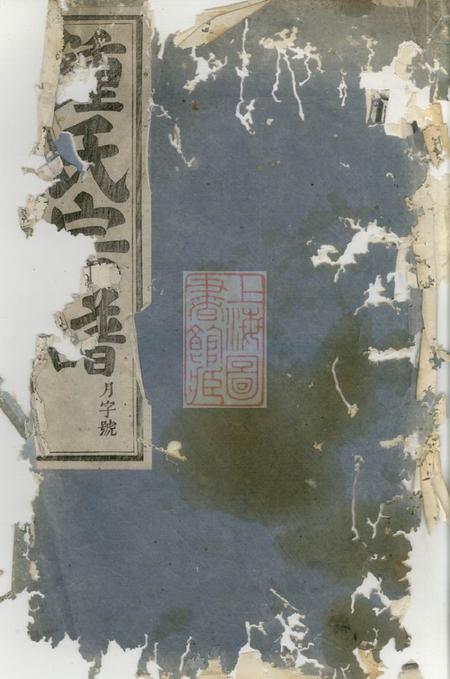 鍾氏宗譜
月字號
上海圖
書館藏